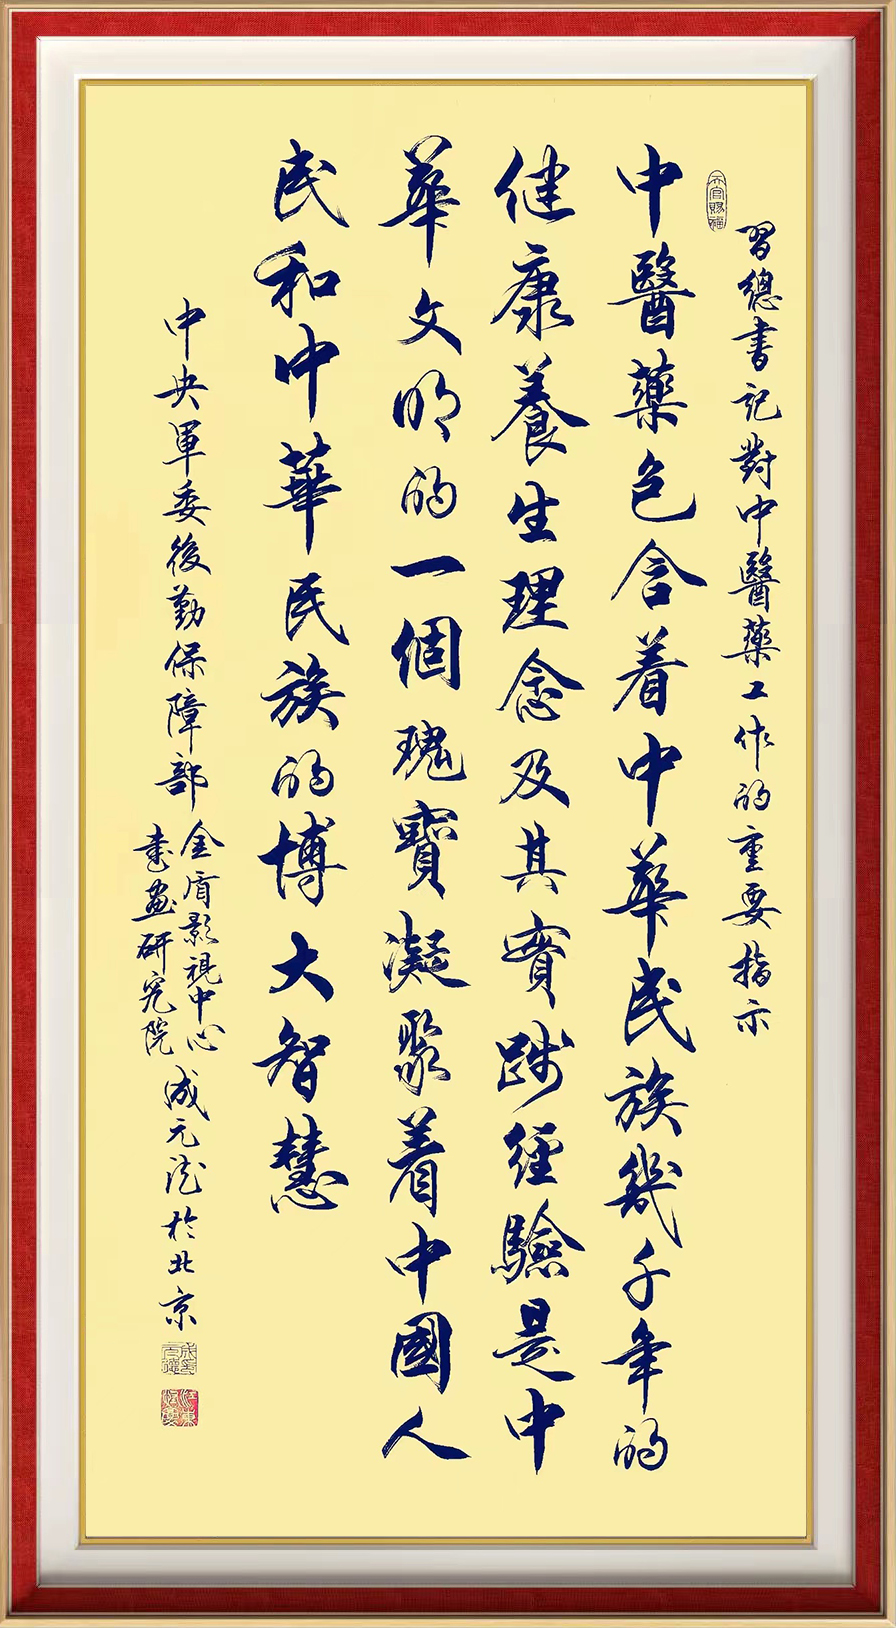 習總書記對中醫藥工作的重要指示
天官賜福
中醫藥包含着中華民族幾千年的
健康養生理念及其實踐經驗是中
華文明的一個瑰寶凝聚着中國人
民和中華民族的博大智慧
中央軍委後勤保障部
金盾影視中心
書畫研究院
成元法於北京